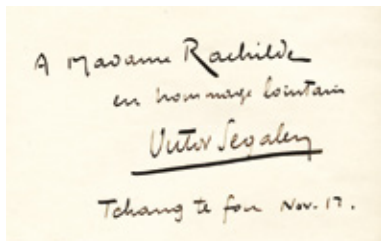 A Madame Rachilde
en hommage lointain
Victor Segalen
Tchang te fou Nov. 17.